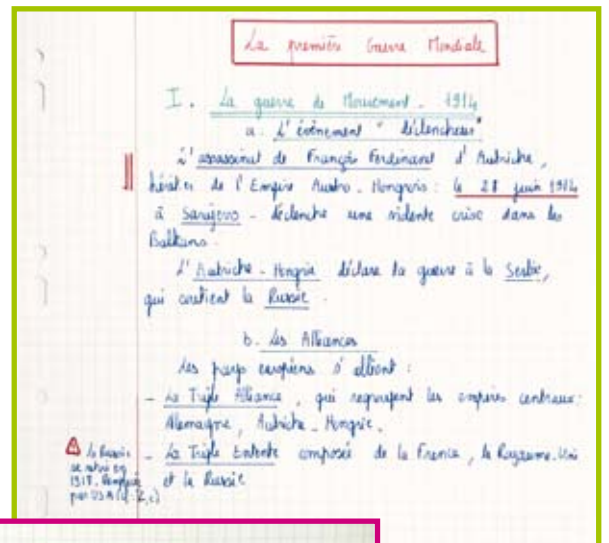 La première Guerre Mondiale
I. La guerre de Mouvement - 1914
a. L'évènement "déclencheur"
L'assassinat de François Ferdinand d'Autriche,
héritier de l'Empire Austro-Hongrois : le 28 juin 1914
à Sarajevo - déclenche une violente crise dans les
Balkans.
L'Autriche-Hongrie déclare la guerre à la Serbie,
qui soutient la Russie.
b. Les Alliances
Les pays européens s'allient :
- La Triple Alliance, qui regroupent les empires centraux :
Allemagne, Autriche-Hongrie.
- La Triple Entente composée de la France, le Royaume-Uni
et la Russie
la Russie
se retire en
1917. Remplacée
par USA (cf. 2,c)